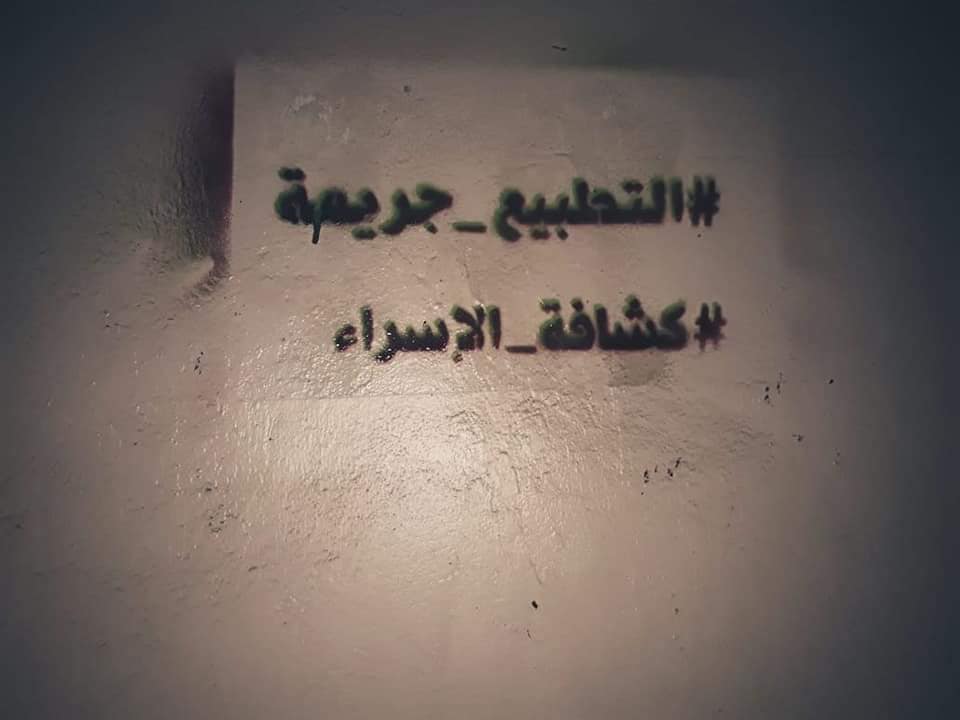 #التطبيع_جريمة
#كشافة_الإسراء